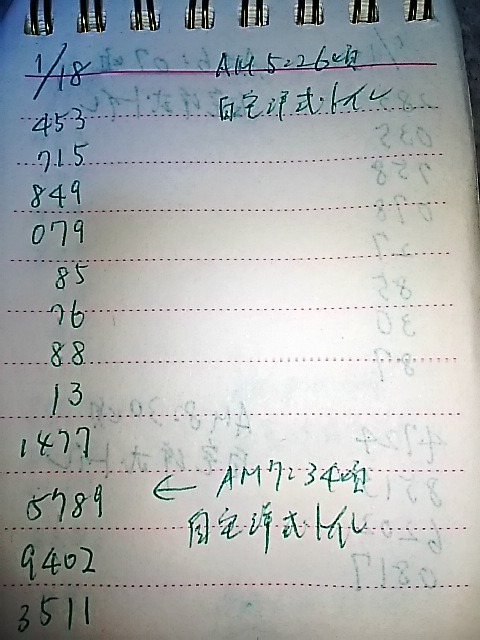 1/18 AM5:26頃
自宅洋式トイレ
453
715
849
079
85
76
88
13
1477
5789 ← AM7:34頃
自宅洋式トイレ
9402
3511